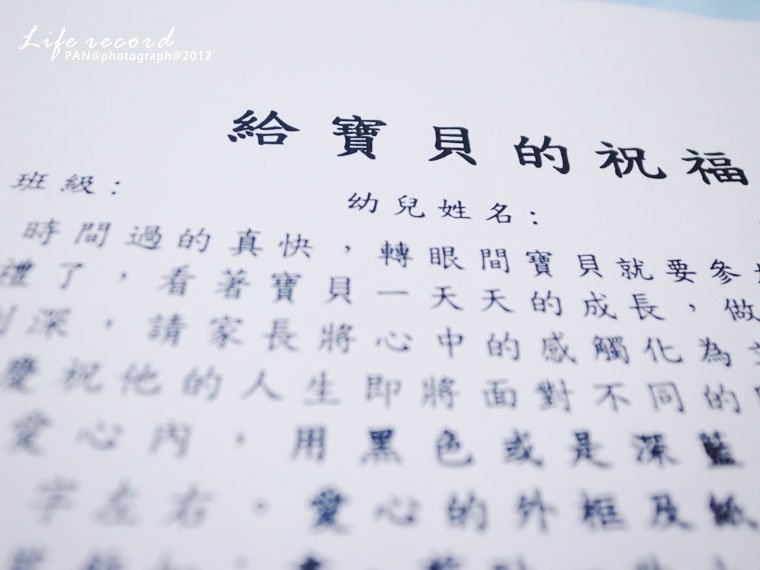 Life record
PAN@photograph@2012
給寶貝的祝福
班級： 幼兒姓名：
時間過的真快，轉眼間寶貝就要參
禮了，看著寶貝一天天的成長，做
深，請家長將心中的感觸化為
慶祝他的人生即將面對不同的
愛心內，用黑色或是深藍
字左右。愛心的外框及紙